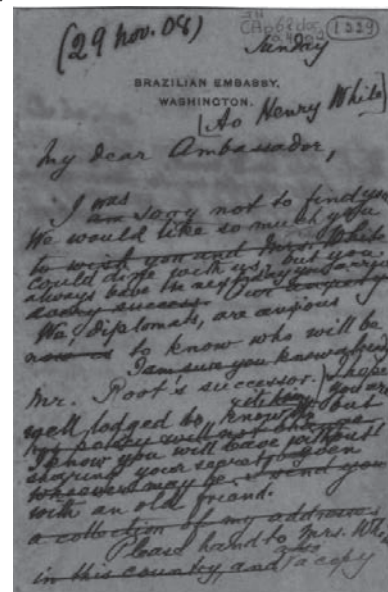 (29 Nov. 08)
1229
Sunday
BRAZILIAN EMBASSY,
WASHINGTON.
[Ao Henry White]
My dear Ambassador,
I was
am sorry not to find you
We would like so much you
to wish you and Mrs. White
could dine with us, but you
always have the next day you
every success. Our
We, diplomats, are anxious
to know who will be
I am sure you know already
Mr. Root's successor. I hope
well lodged to know it, but
policy will not
I know you will leave without
sharing your secret even
whoever may be. I send you
with an old friend.
a collection of my addresses
Please hand to Mrs. White
in this country, and also a copy